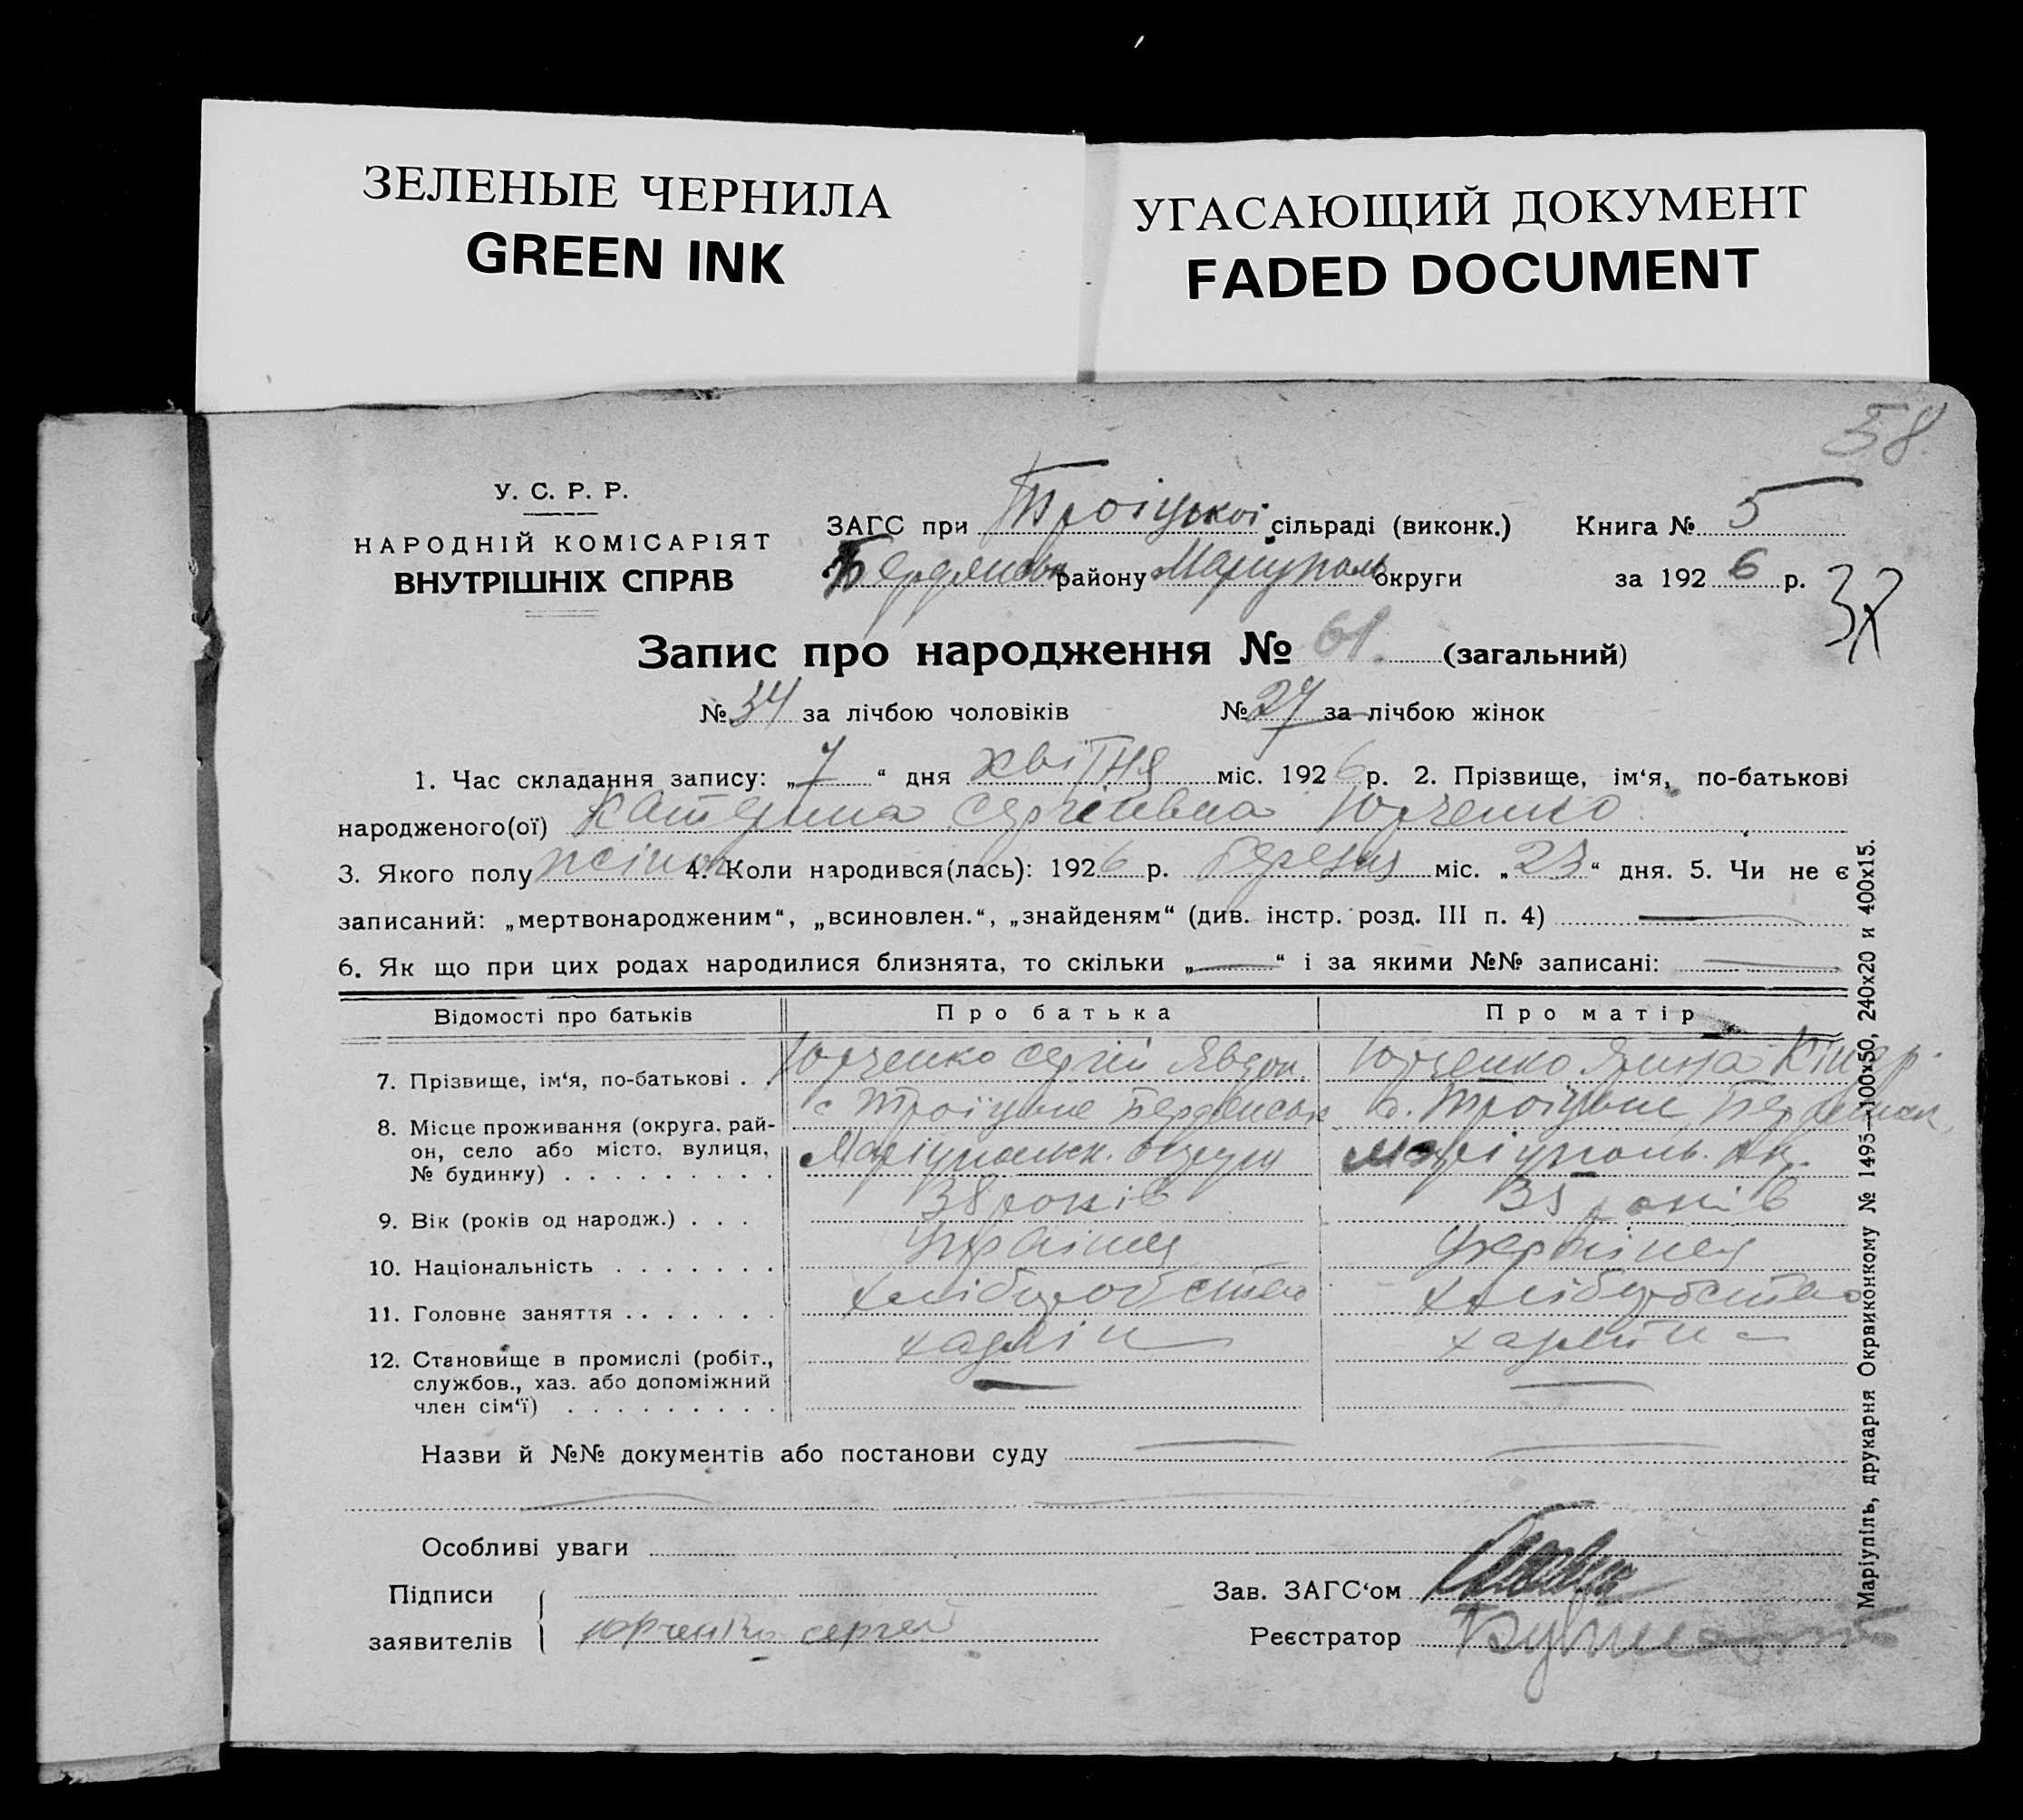 ЗЕЛЕНЫЕ ЧЕРНИЛА
GREEN INK
УГАСАЮЩИЙ ДОКУМЕНТ
FADED DOCUMENT
58.
У. С. Р. Р.
НАРОДНІЙ КОМІСАРІЯТ
ВНУТРІШНІХ СПРАВ
ЗАГС при Троіцькоі сільраді (виконк.) Книга № 5
Бердянськ району Маріуполь округи за 1926 р.
Запис про народження № 61. (загальний)
№ 34 за лічбою чоловіків № 27 за лічбою жінок
1. Час складання запису: „7“ дня квітня міс. 1926 р. 2. Прізвище, ім‘я, по-батькові
народженого(ої) Катерина Сергіівна Юрченко
3. Якого полу жіноч 4. Коли народився(лась): 1926 р. березня міс. „23“ дня. 5. Чи не є
записаний: „мертвонародженим“, „всиновлен.“, „знайденям“ (див. інстр. розд. III п. 4)
6. Як що при цих родах народилися близнята, то скільки „—“ і за якими №№ записані:
Відомості про батьків Про батька Про матір
7. Прізвище, ім‘я, по-батькові . . Юрченко Сергій Явдок. Юрченко
8. Місце проживання (округа, рай- с Троіцьке Бердянськ с. Троіцьке Бердянськ
он, село або місто, вулиця, Маріупольск. округи Маріуполь. Ок.
№ будинку) . . . . . . . . .
9. Вік (років од народж.) . . . 38 років 35 років
10. Національність . . . . . . . Украінец Украінец
11. Головне заняття . . . . . . . хліборобство хліборобство
12. Становище в промислі (робіт.,
службов., хаз. або допоміжний
член сім‘ї) . . . . . . . . .
Назви й №№ документів або постанови суду
Особливі уваги
Підписи
заявителів Юрченко Сергей
Зав. ЗАГС‘ом
Реєстратор
Маріупіль, друкарня Окрвиконкому № 1495—100×50, 240х20 и 400х15.